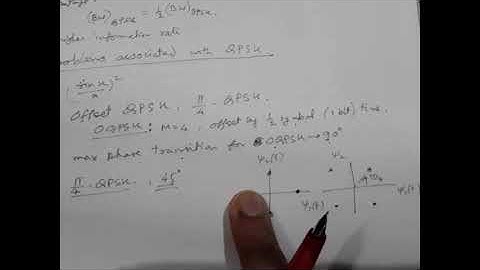 (BW)QPSK = 1/2 (BW)BPSK.
higher information rate
problems associated with QPSK
(sin x / x)²
Offset QPSK, π/4 - QPSK.
OQPSK: M=4, offset by 1/2 symbol (1 bit) time.
max phase transition for OQPSK → 90°
π/4 - QPSK : 45°
ψ₂(t) ψ₂
ψ₁(t) ψ₁(t)